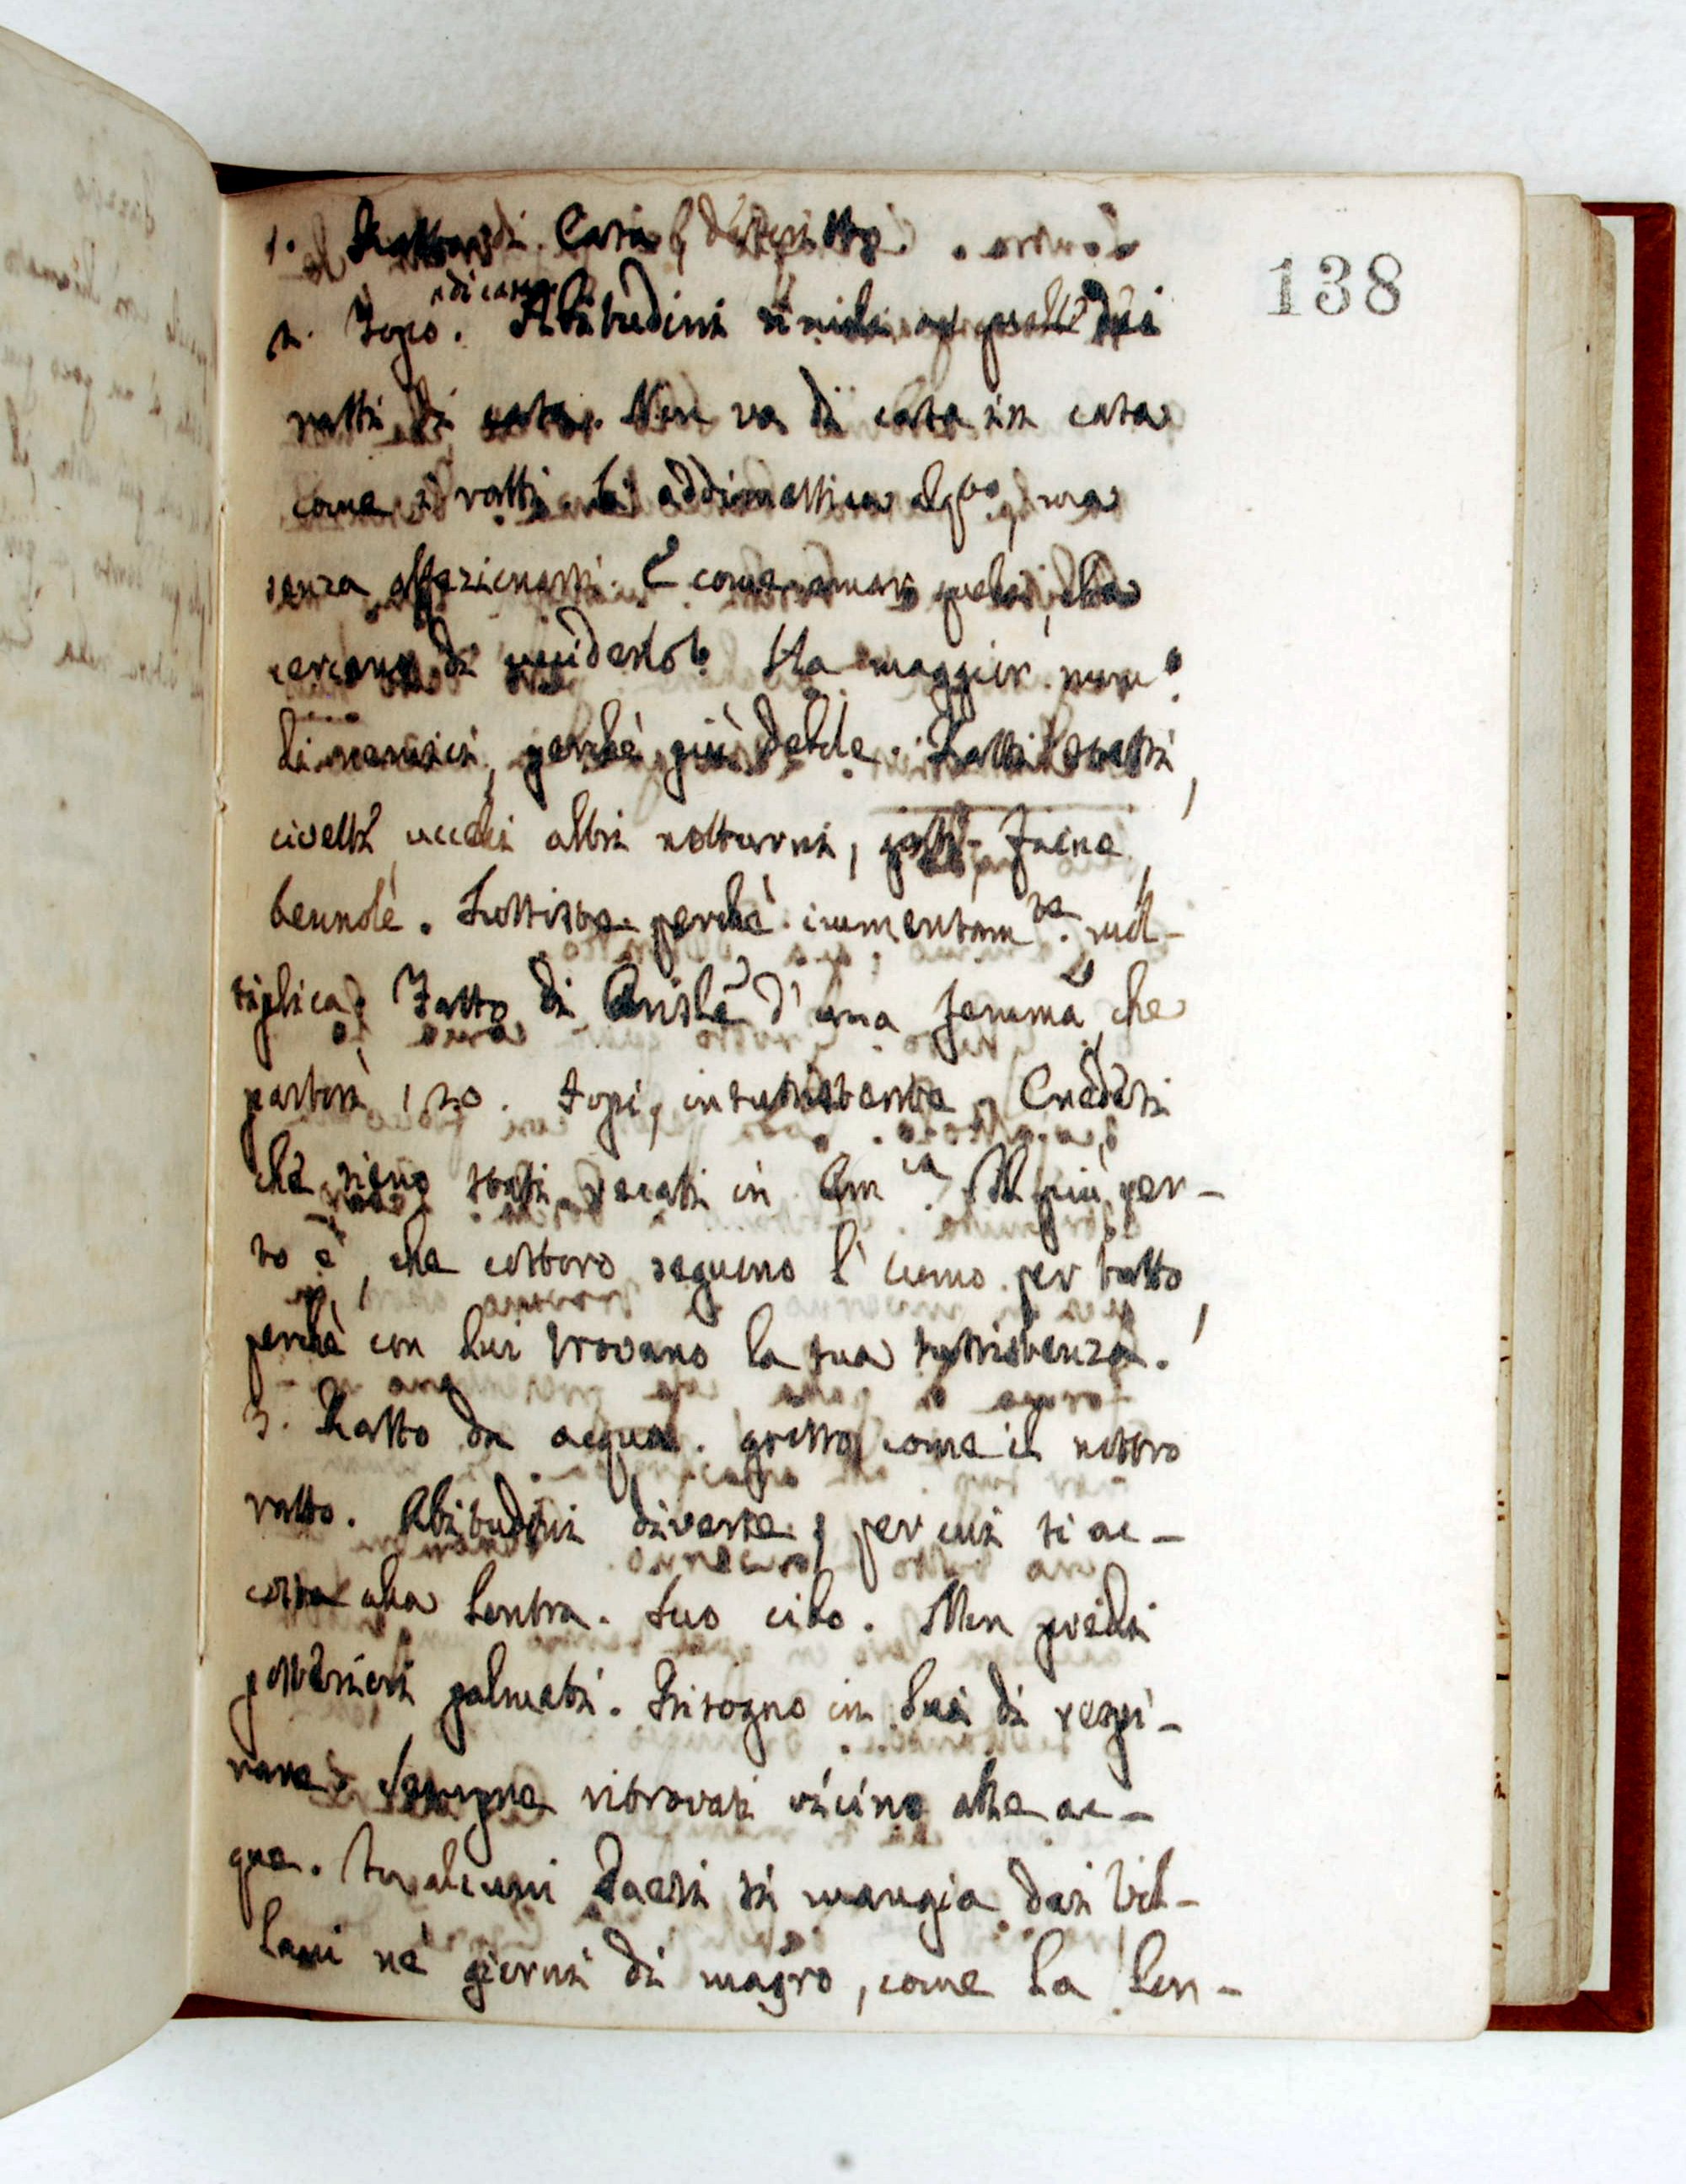 138
1. Ratto di Casa descritto
di casa
2. Topo. Abitudini simili a quelle dei
ratti di casa. Non va di casa in casa
come i ratti. Si addimestica alq.to, ma
senza affezionarsi. E come amar quelli, che
cercano di ucciderlo? Ha maggior num.o
di nemici, perchè più debole. Ratti stessi,
civette, uccelli altri notturni, gatti, Faine
bennole. Sussiste perchè immentam.te mol-
tiplica. Fatto di Arist.e d'una femma che
partorì 120. topi, in
che sieno stati recati in Am.ca Il più cer-
to è, che costoro seguono l'uomo per tutto,
perchè con lui trovano la sua sussistenza.
3. Ratto da acqua. grosso come il nostro
ratto. Abitudini diverse, per cui si ac-
costa alla Lontra. Suo cibo. Non piedi
posteriori palmati. Bisogno in lui di respi-
rare. Sempre ritrovasi vicino alle ac-
que. In alcuni Paesi si mangia dai Vil-
lani ne' giorni di magro, come la Lon-